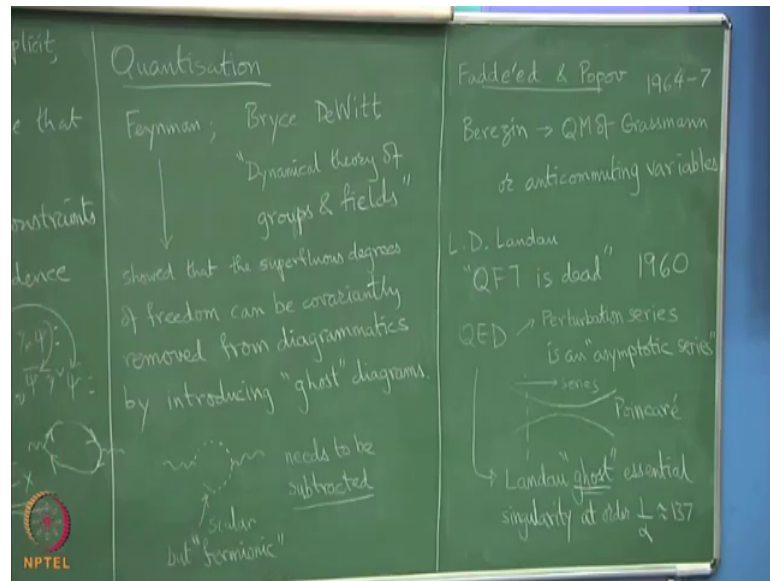 plicit,
e that
onstraints
dence
Quantisation
Feynman; Bryce DeWitt
"Dynamical theory of
groups & fields"
showed that the superfluous degrees
of freedom can be covariantly
removed from diagrammatics
by introducing "ghost" diagrams.
needs to be
subtracted
scalar
but "fermionic"
Fadde'ed & Popov 1964-7
Berezin → QM of Grassmann
or anticommuting variables
L.D. Landau
"QFT is dead" 1960
QED Perturbation series
is an "asymptotic series"
→ series
Poincaré
Landau "ghost" essential
singularity at order 1/α ≈ 137
NPTEL